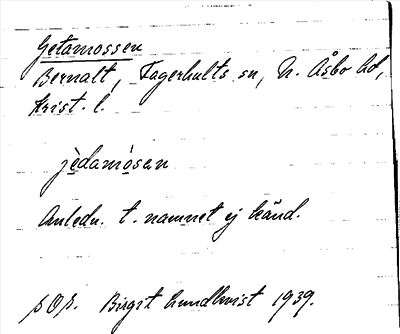 Getamossen
Bernalt, Fagerhults sn, N. Åsbo hd,
Krist. l.
jèdamòsan
Anledn. t. namnet ej känd.
Birgit Lundkvist 1939.